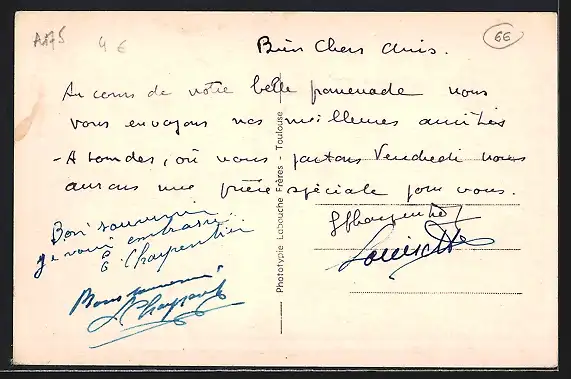 A175 4 € 66
Bien Chers Amis.
Au cours de notre belle promenade nous
vous envoyons nos meilleures amitiés
- A Lourdes, où nous partons Vendredi nous
aurons une prière spéciale pour vous.
Bon souvenir
je vous embrasse
G. Charpentier
Bons souvenirs
Charpentier
Louisette
Phototypie Labouche Frères - Toulouse